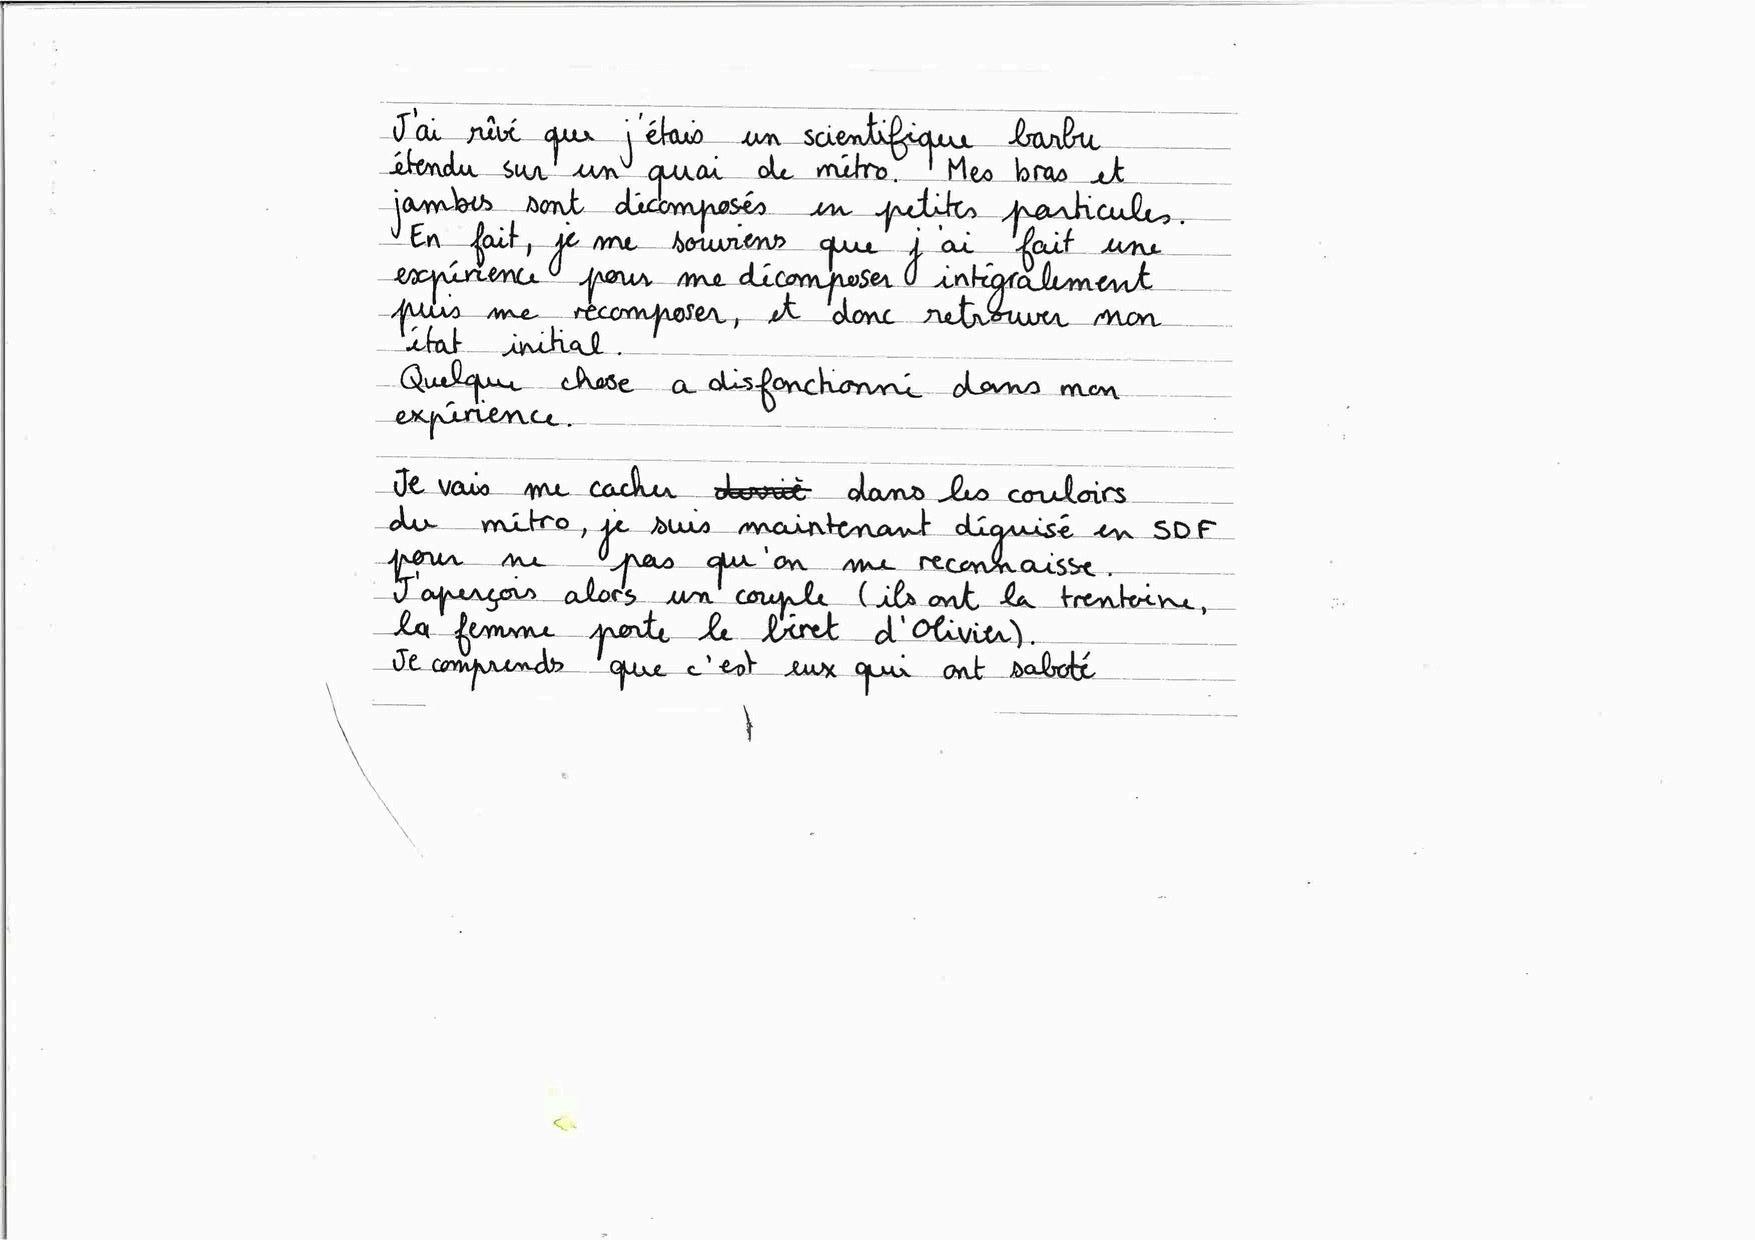 J'ai rêvé que j'étais un scientifique barbu
étendu sur un quai de métro. Mes bras et
jambes sont décomposés en petites particules.
En fait, je me souviens que j'ai fait une
expérience pour me décomposer intégralement
puis me recomposer, et donc retrouver mon
état initial.
Quelque chose a disfonctionné dans mon
expérience.
Je vais me cacher derriè dans les couloirs
du métro, je suis maintenant déguisé en SDF
pour ne pas qu'on me reconnaisse.
J'aperçois alors un couple (ils ont la trentaine,
la femme porte le béret d'Olivier).
Je comprends que c'est eux qui ont saboté